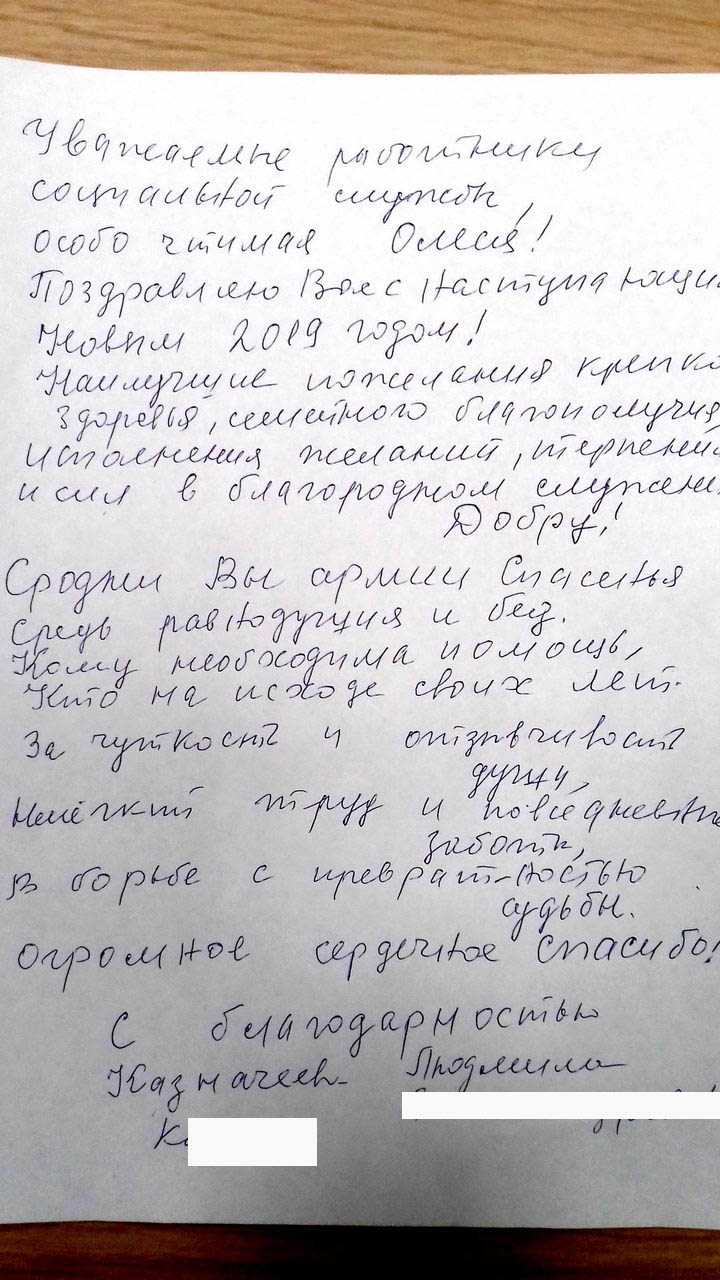 Уважаемые работники
социальной службы,
особо чтимая Олеся!
Поздравляю Вас с наступающи
Новым 2019 годом!
Наилучшие пожелания крепко
здоровья, семейного благополучия,
исполнения желаний, терпения
и сил в благородном служени
Добру!
Сродни Вы армии Спасенья
Средь равнодушия и бед.
Кому необходима помощь,
Кто на исходе своих лет.
За чуткость и отзывчивость
души,
Нелёгкий труд и повседневны
заботы,
В борьбе с преврат-ностью
судьбы.
огромное сердечное спасибо!
С благодарностью
Казначеев- Людмила